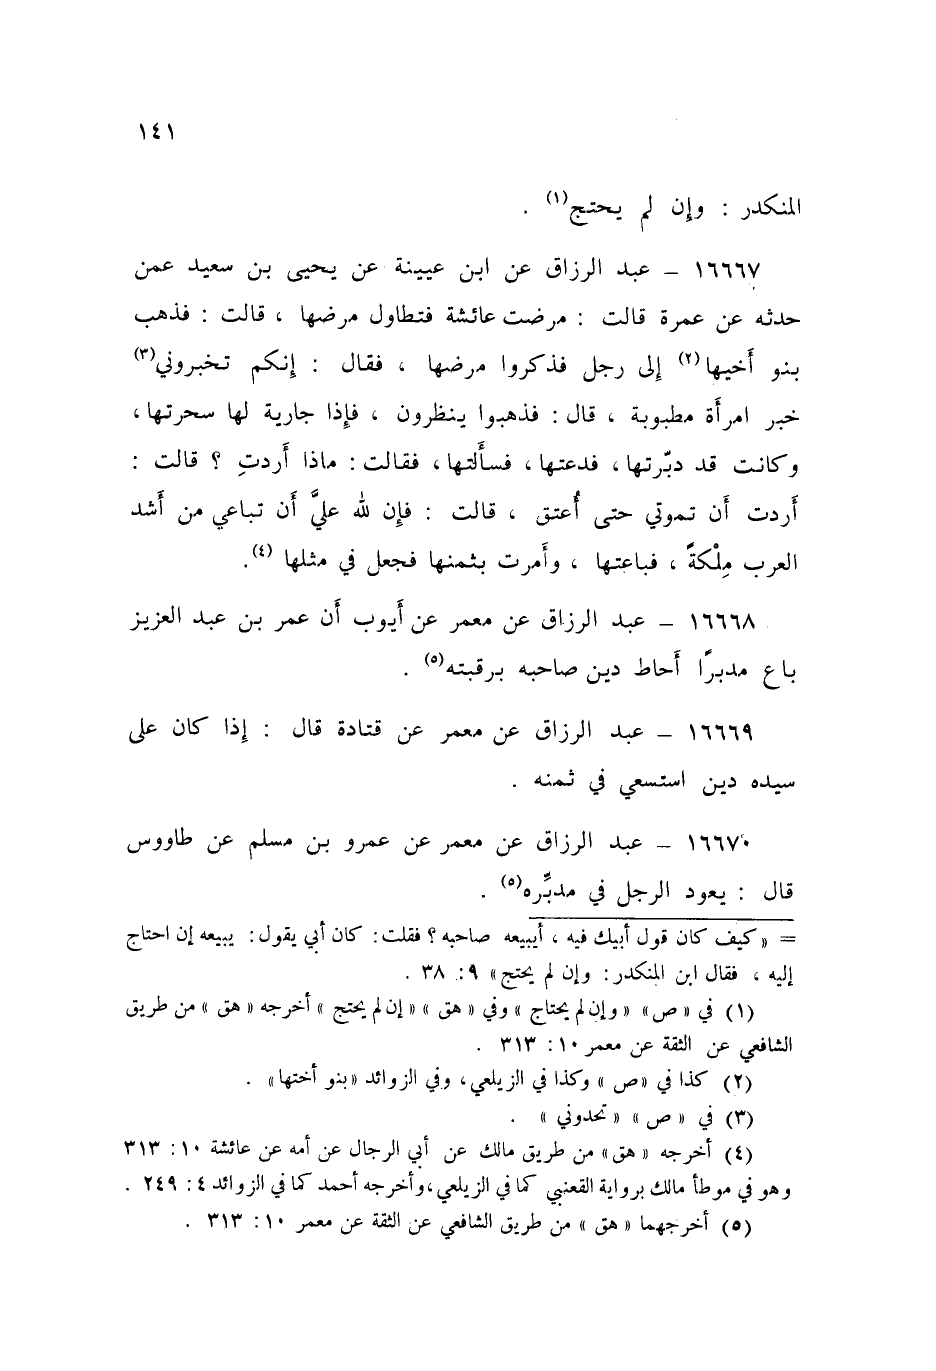 ١٤١
المنكدر : وإن لم يحتج(١) .
١٦٦٦٧ – عبد الرزاق عن ابن عيينة عن يحيى بن سعيد عمن
حدثه عن عمرة قالت : مرضت عائشة فتطاول مرضها ، قالت : فذهب
بنو أَخيها(٢) إلى رجل فذكروا مرضها ، فقال : إنكم تخبروني(٣)
خبر امرأَة مطبوبة ، قال : فذهبوا ينظرون ، فإذا جارية لها سحرتها ،
وكانت قد دبّرتها ، فدعتها ، فسأَلتها ، فقالت : ماذا أَردتِ ؟ قالت :
أَردت أَن تموتي حتى أُعتق ، قالت : فإن لله عليَّ أَن تباعي من أَشد
العرب مِلْكةً ، فباعتها ، وأَمرت بثمنها فجعل في مثلها (٤).
١٦٦٦٨ – عبد الرزاق عن معمر عن أَيوب أَن عمر بن عبد العزيز
باع مدبرًا أَحاط دين صاحبه برقبته(٥) .
١٦٦٦٩ – عبد الرزاق عن معمر عن قتادة قال : إذا كان على
سيده دين استسعي في ثمنه .
١٦٦٧٠ – عبد الرزاق عن معمر عن عمرو بن مسلم عن طاووس
قال : يعود الرجل في مدبِّره(٥) .
= « كيف كان قول أبيك فيه ، أيبيعه صاحبه ؟ فقلت : كان أبي يقول : يبيعه إن احتاج
إليه ، فقال ابن المنكدر : وإن لم يحتج » ٩ : ٣٨ .
(١) في « ص » « وإن لم يحتاج » وفي « هق » « إن لم يحتج » أخرجه « هق » من طريق
الشافعي عن الثقة عن معمر ١٠ : ٣١٣ .
(٢) كذا في «ص » وكذا في الزيلعي ، وفي الزوائد «بنو أختها» .
(٣) في « ص » « تحدوني » .
(٤) أخرجه « هق » من طريق مالك عن أبي الرجال عن أمه عن عائشة ١٠ : ٣١٣
وهو في موطأ مالك برواية القعنبي كما في الزيلعي ، وأخرجه أحمد كما في الزوائد ٤ : ٢٤٩ .
(٥) أخرجهما « هق » من طريق الشافعي عن الثقة عن معمر ١٠ : ٣١٣ .